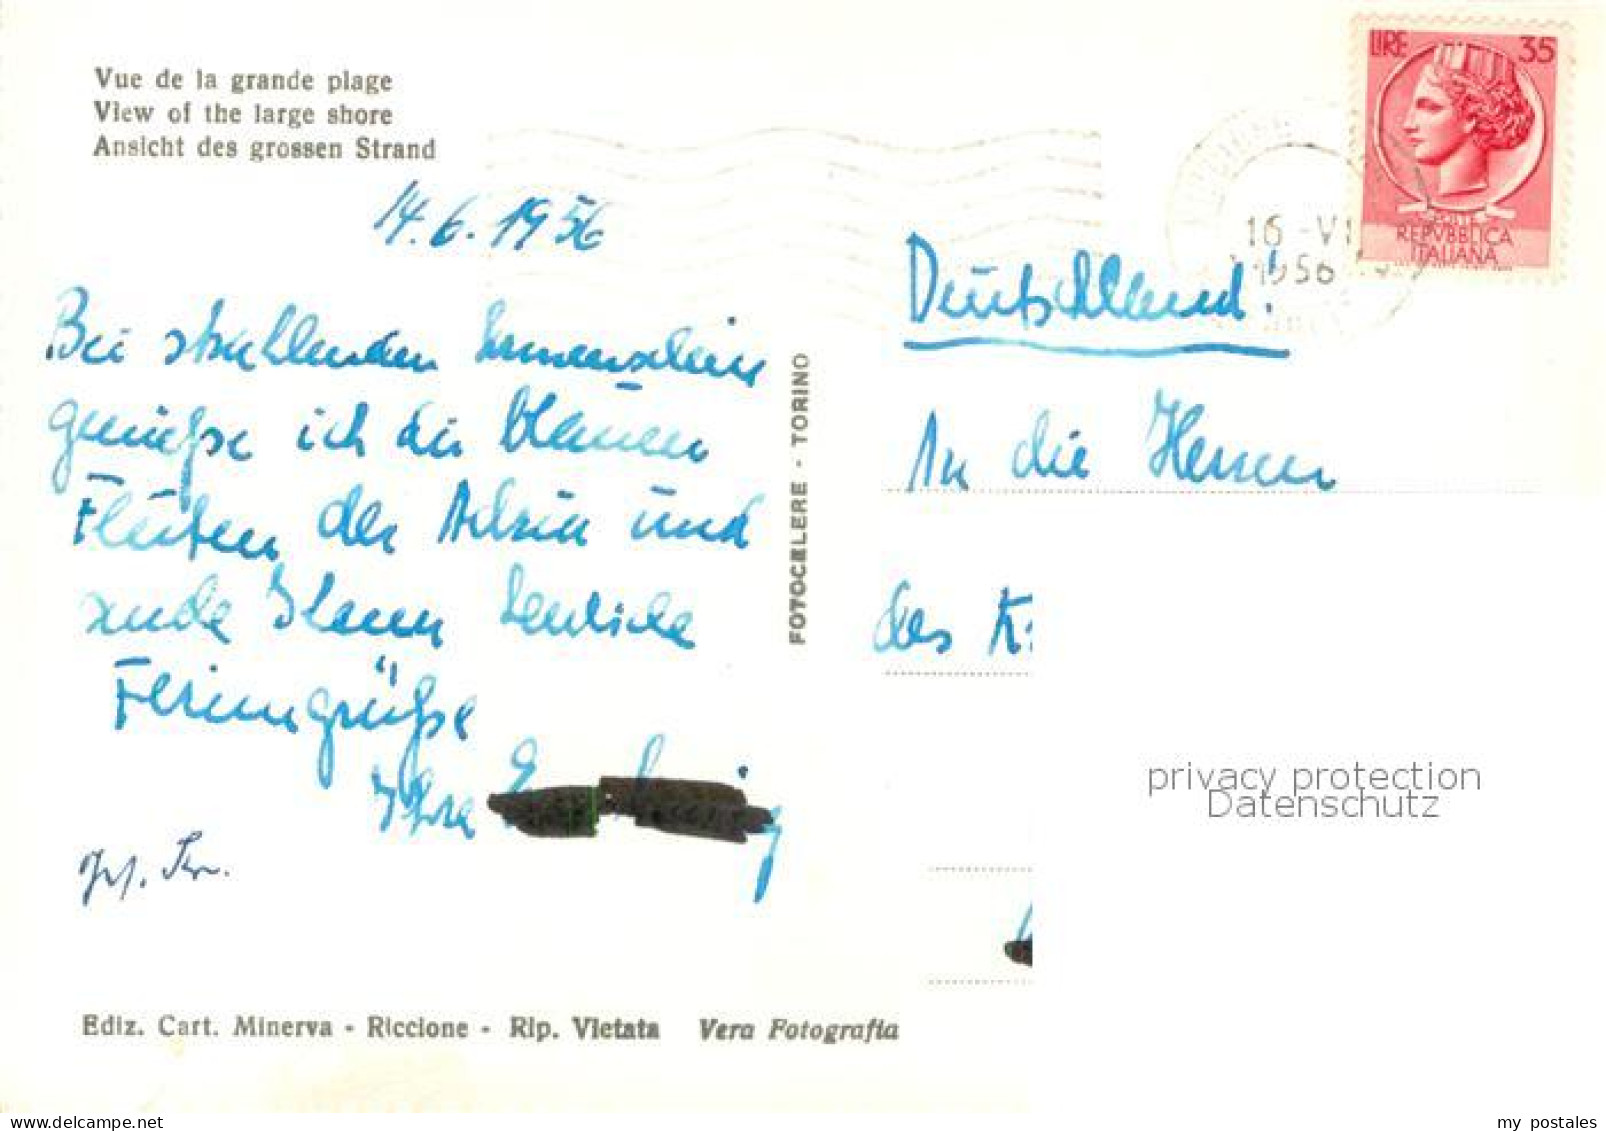 Vue de la grande plage
View of the large shore
Ansicht des grossen Strand
14.6.1956
Bei strahlenden Sonnenschein
genieße ich die blauen
Fluten der Adria und
sende Ihnen herzliche
Feriengrüße
Ihre
FOTOCELERE - TORINO
LIRE 35
POSTE
REPVBBLICA
ITALIANA
16 -VI
1956
Deutschland!
An die Herren
des K
privacy protection
Datenschutz
Ediz. Cart. Minerva - Riccione - Rip. Vietata Vera Fotografia
my postales